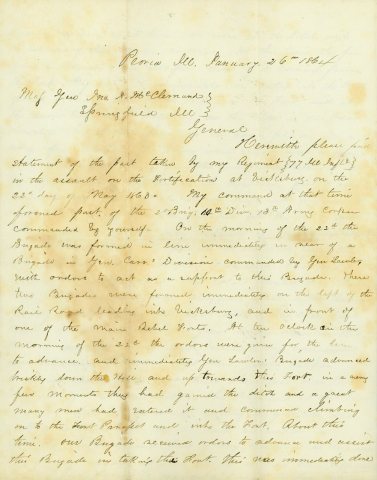 Peoria Ill. January 26th 1864
Maj Gen Jno A. McClernand
Springfield Ill
General
Herewith please find
statement of the part taken by my Regiment (77 Ill Inft)
in the assault on the Fortification at Vicksburg on the
22d day of May 1863. My command at that time
formed part of the 2d Brig. 10th Div. 13th Army Corps
commanded by yourself. On the morning of the 22d the
Brigade was formed in line immediately in rear of a
Brigade in Gen Carrs Division commanded by Gen Lawler
with orders to act as a support to this Brigade. These
two Brigades were formed immediately on the left of the
Rail Road leading into Vicksburg, and in front of
one of the main Rebel Forts. At ten oclock in the
morning of the 22d the orders were given for the line
to advance, and immediately Gen Lawlers Brigade advanced
down the Hill and up towards the Fort in a very
few moments they had gained the ditch and a great
many men had entered it and commenced climbing
on to the Fort Parapet and into the Fort. About this
time our Brigade received orders to advance and assist
this Brigade in taking the Fort. This was immediately done